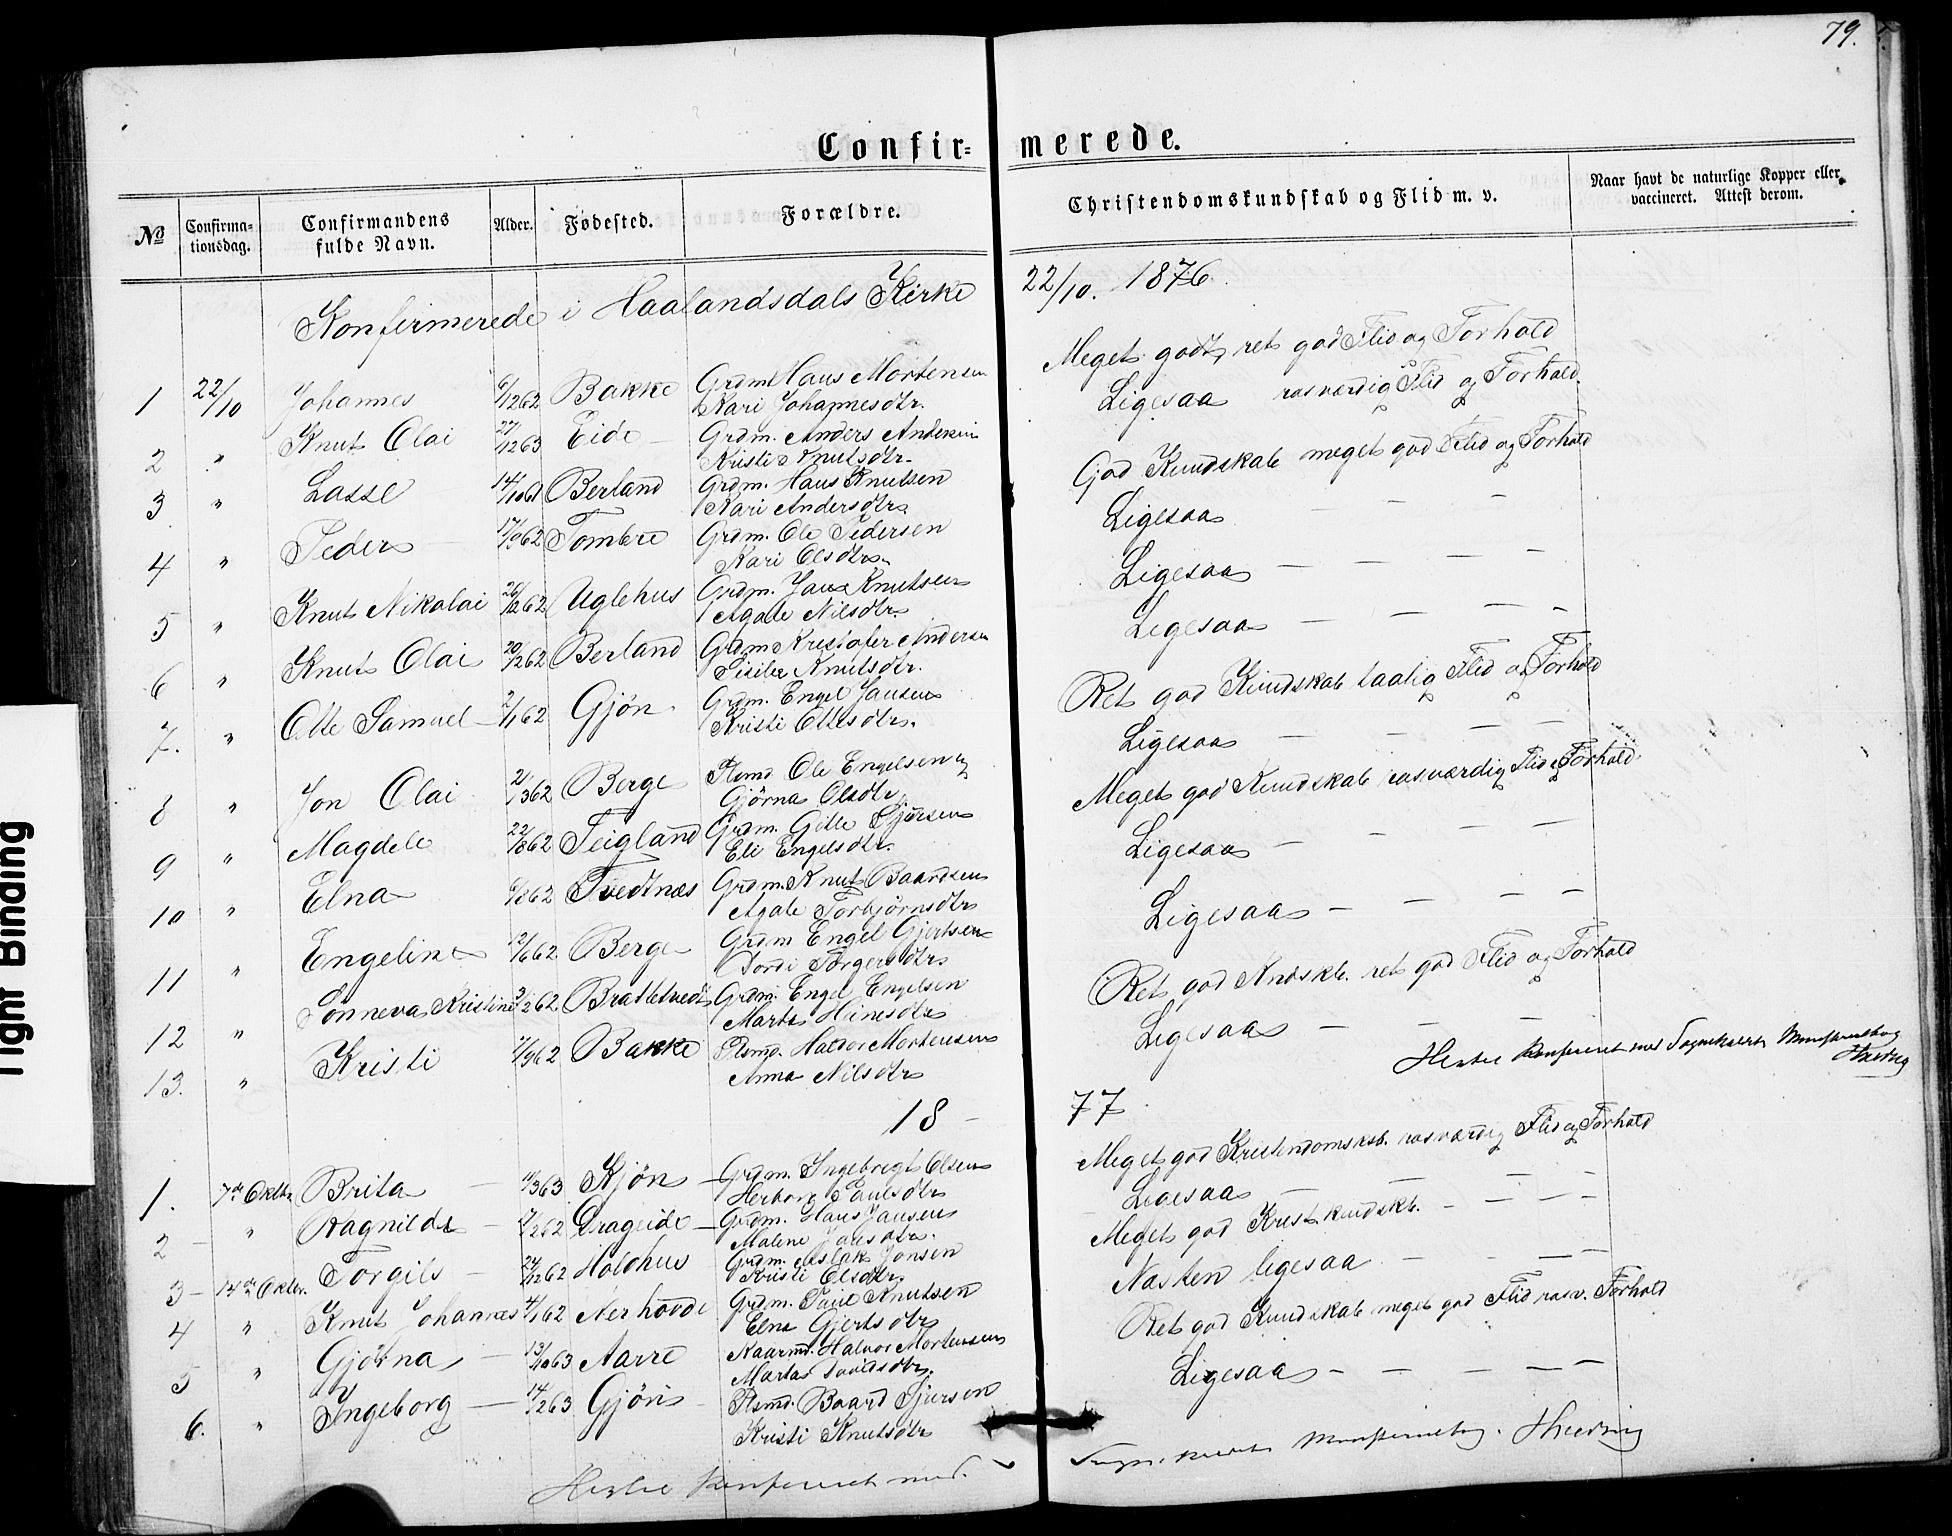 79.
Confir- merede.
No Confirma-tionsdag. Confirmandens fulde Navn. Alder. Fødested. Forældre. Christendomskundskab og Flid m. v. Naar havt de naturlige Kopper eller vaccineret. Attest derom.
Konfirmerede i Haalandsdals Kirke 22/10. 1876.
1 22/10 Johannes 6/1262 Bakke Grdm Hans Mortensen Kari Johannesdtr. Meget godt, ret god Flid og Forhold
2 " Knut Olai 27/1263 Eide Grdm. Anders Andersen Kristi Knutsdtr. Ligesaa rosværdig Flid og Forhold.
3 " Lasse 14/1061 Berland Grdm. Hans Knutsen Kari Andersdtr. God Kundskab meget god Flid og Forhold
4 " Peder 17/962 Tombre Grdm. Ole Pedersen Kari Olsdtr. Ligesaa — —
5 " Knut Nikolai 26/1262 Uglehus Grdm. Jans Knutsen Agate Nilsdtr. Ligesaa — — —
6 " Knut Olai 20/1262 Berland Grdm Kristofer Andersen Sisilie Knutsdtr. Ligesaa — — — —
7. " Otte Samuel 2/162 Gjøn Grdm. Engel Jansen Kristi Ottesdtr. Ret god Kundskab taalig Flid og Forhold
8 " Jon Olai 21/362 Berge Plsmd Ole Engelsen og Gjørna Olsdtr. Ligesaa — — — —
9 " Magdele 22/862 Teigland Grdm. Gitle Sjursen Eli Engelsdtr. Meget god Kundskab rosværdig Flid og Forhold.
10 " Elna 6/862 Tvedtnæs Grdm. Knut Baardsen Agate Torbjørnsdtr Ligesaa — — — —
11 " Engeline 12/662 Berge Grdm Engel Gjertsen Dordi Torgersdtr. Ligesaa — — — —
12 " Sønneva Kristine 3/262 Bratletvedt Grdm. Engel Engelsen Marta Heinesdtr Ret god Kndskb. ret god Flid og Forhold
13. " Kristi 7/962 Bakke Plsmd. Halvor Mortensen Anna Nilsdtr Ligesaa — — —
Hertil konfereret med
18 — 77
1. 7de Oktbr. Brita 11/363 Kjøn Grdm. Ingebregt Olsen Herborg Paulsdtr Meget god Kristendomsksb. rosværdig Flid og Forhold
2 — " Ragnilde 7/262 Drageide Grdm. Hans Jansen Malene Jansdtr. Ligesaa — — — —
3 — 14de Oktbr. Torgils 24/1262 Holdhus Grdm. Aslak Jonsen Kristi Olsdtr. Meget god Krist. kundskb. — — — —
4 " Knut Johannes 4/162 Nerhovde Grdm. Paul Knutsen Elna Gjertsdtr Næsten ligesaa — — —
5 " Gjørna 13/1063 Aarre Kaarmd. Halvor Mortensen Marta Davidsdtr. Ret god Kundskab meget god Flid rosv. Forhold
6. " Ingeborg 14/263 Gjøn Plsmd. Baard Sjursen Kristi Knutsdtr Ligesaa — — — — —
Hertil konfereret med
Tight Binding